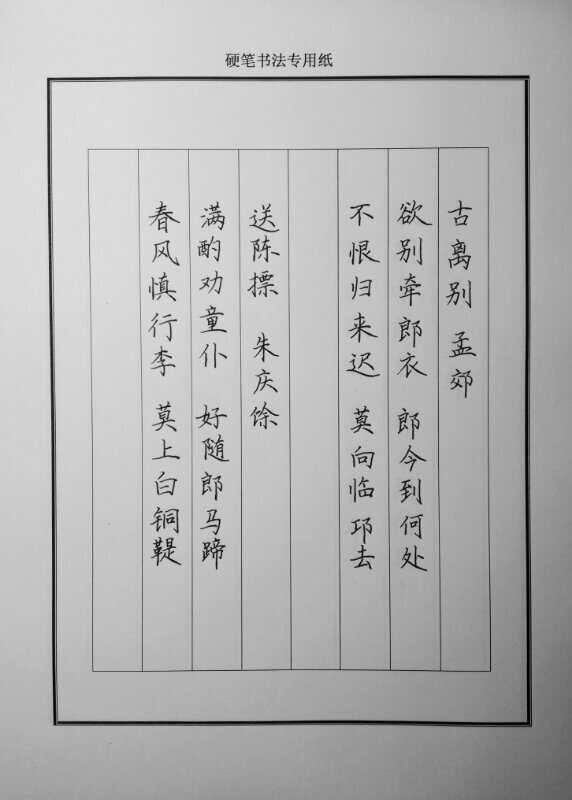 硬笔书法专用纸
古离别 孟郊
欲别牵郎衣 郎今到何处
不恨归来迟 莫向临邛去
送陈摽 朱庆馀
满酌劝童仆 好随郎马蹄
春风慎行李 莫上白铜鞮